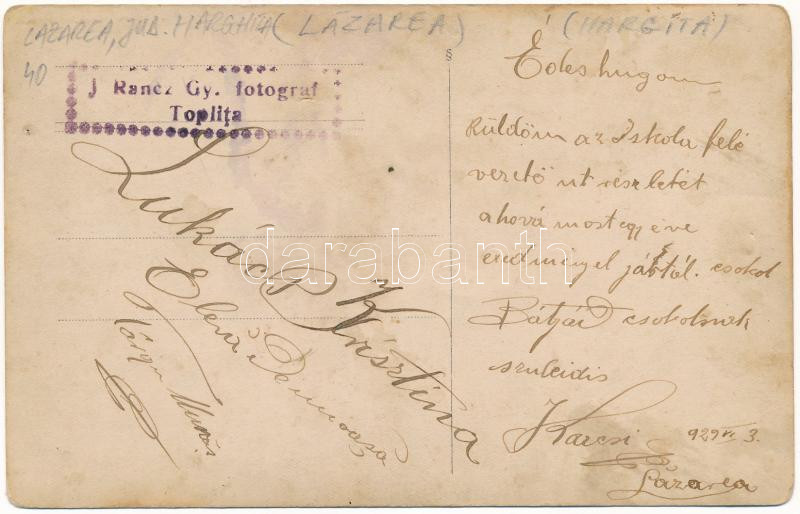 LAZAREA, JUD. HARGHITA (LĂZAREA) (HARGITA)
40
J Rancz Gy. fotograf
Topliţa
Lukács Krisztina
Elevă
Tárgu Mureş
Édes hugom
Küldöm az Iskola felé
vezető út részletét
ahová most egy éve
eredményel jártál. csokol
Bátyád csokolnak
szuleidis
Karcsi 929 VI 3.
Lăzarea
darabanth